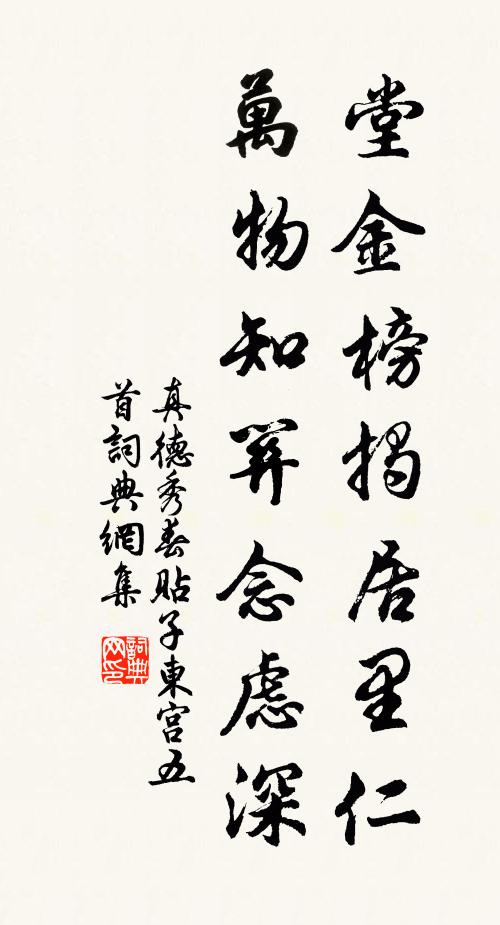 堂金榜揭居里仁
萬物知念慮深
真德秀春貼子東宮五
首詞典網集
詞典
网印